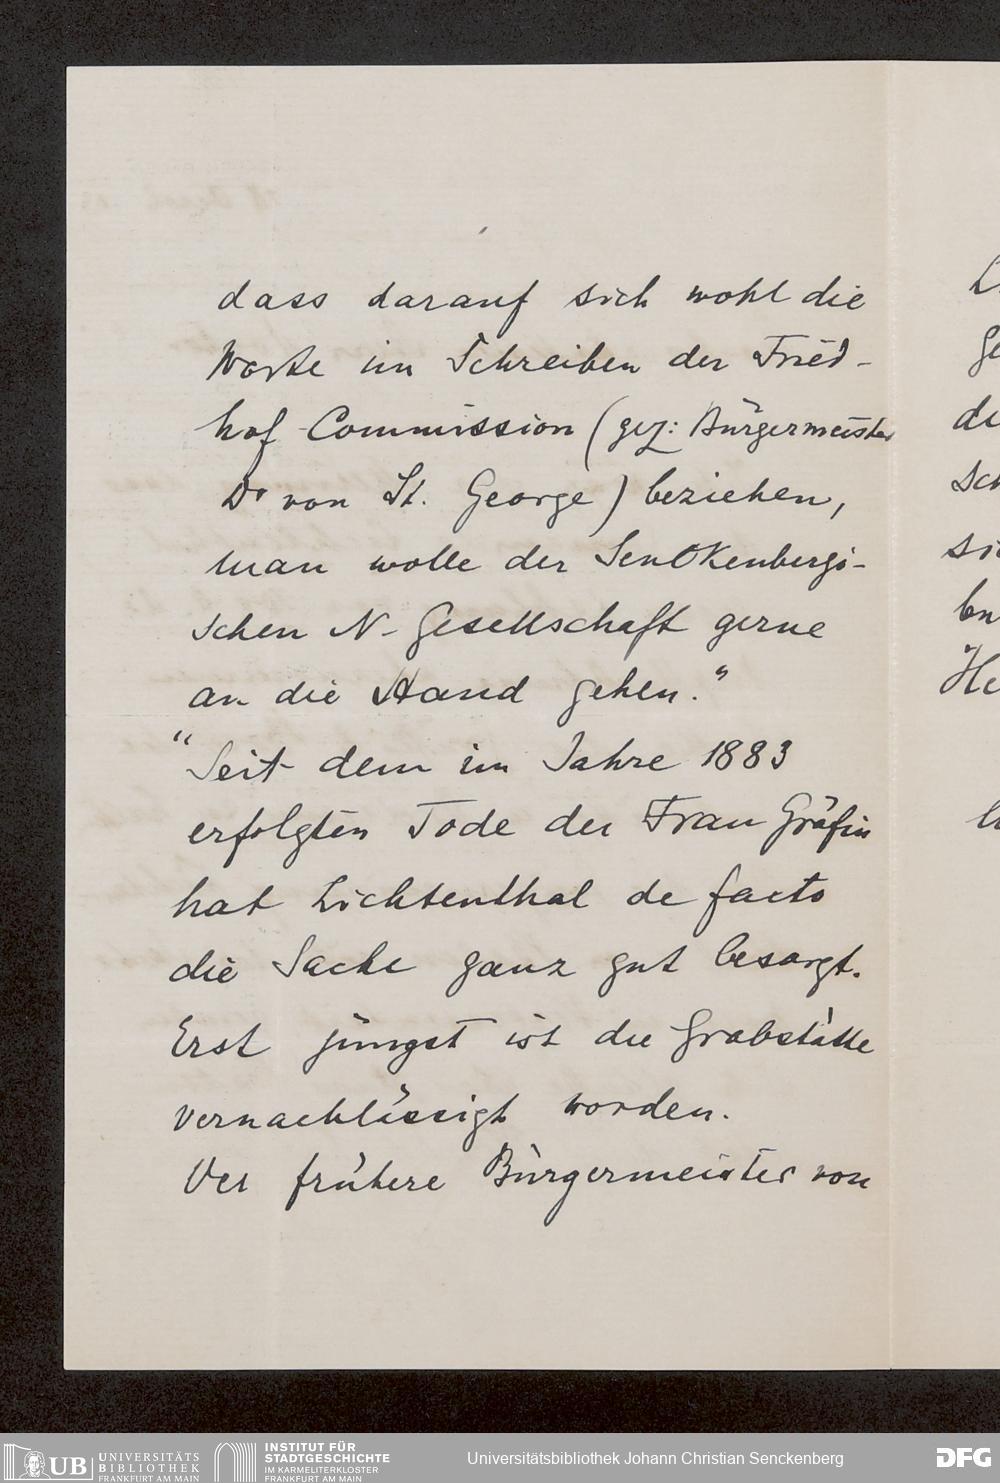 dass darauf sich wohl die
Worte im Schreiben der Fried-
hof Commission (gez: Bürgermeister
Dr von St. George) beziehen,
man wolle der Senckenbergi-
schen N- Gesellschaft gerne
an die Hand gehen."
"Seit dem im Jahre 1883
erfolgten Tode der Frau Gräfin
hat Lichtenthal de facto
die Sache ganz gut besorgt.
Erst jüngst ist die Grabstätte
vernachlässigt worden.
Der frühere Bürgermeister von
ge
di
sch
sic
He
UB UNIVERSITÄTS BIBLIOTHEK FRANKFURT AM MAIN
INSTITUT FÜR STADTGESCHICHTE IM KARMELITERKLOSTER FRANKFURT AM MAIN
Universitätsbibliothek Johann Christian Senckenberg
DFG